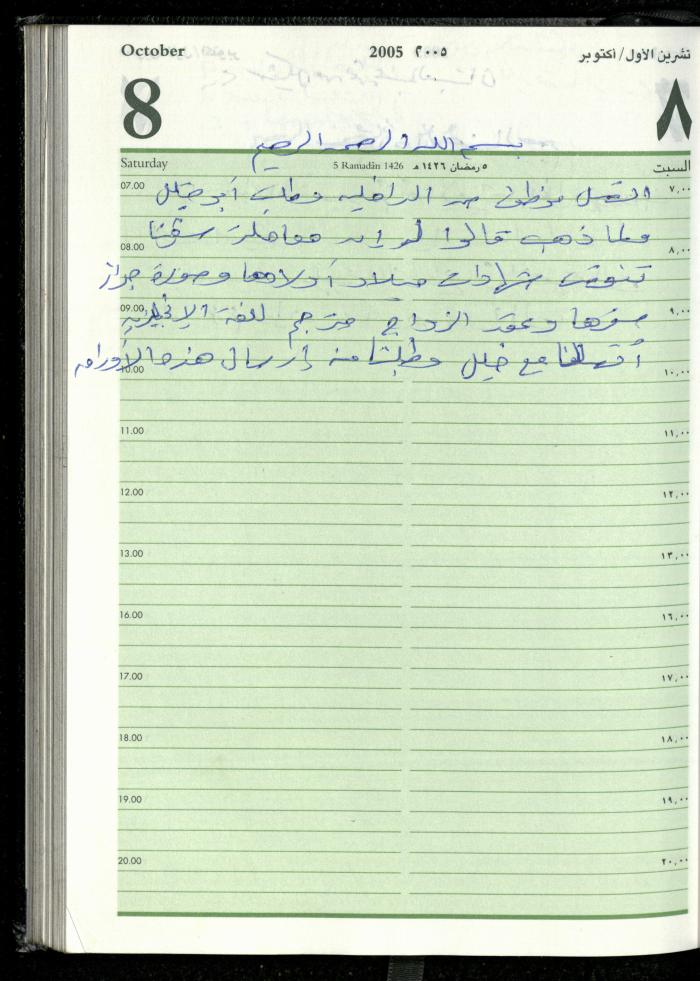 October 2005 ٢٠٠٥ تشرين الاول/أكتوبر
8 ٨
بسم الله الرحمن الرحيم
Saturday 5 Ramadân 1426 ٥ رمضان ١٤٢٦ هـ السبت
07.00 اتصل موظف من الداخلية وطلب أبو خليل ٧,٠٠
ولما ذهب قالوا له إن معاملة
08.00 ٨,٠٠
تنقص شهادات ميلاد أولادها وصورة جواز
09.00 ٩,٠٠
سفرها وعقد الزواج مترجم للغة الإنجليزية
مع خليل وطلبنا منه إرسال هذه الأوراق
10.00 ١٠,٠٠
11.00 ١١,٠٠
12.00 ١٢,٠٠
13.00 ١٣,٠٠
16.00 ١٦,٠٠
17.00 ١٧,٠٠
18.00 ١٨,٠٠
19.00 ١٩,٠٠
20.00 ٢٠,٠٠